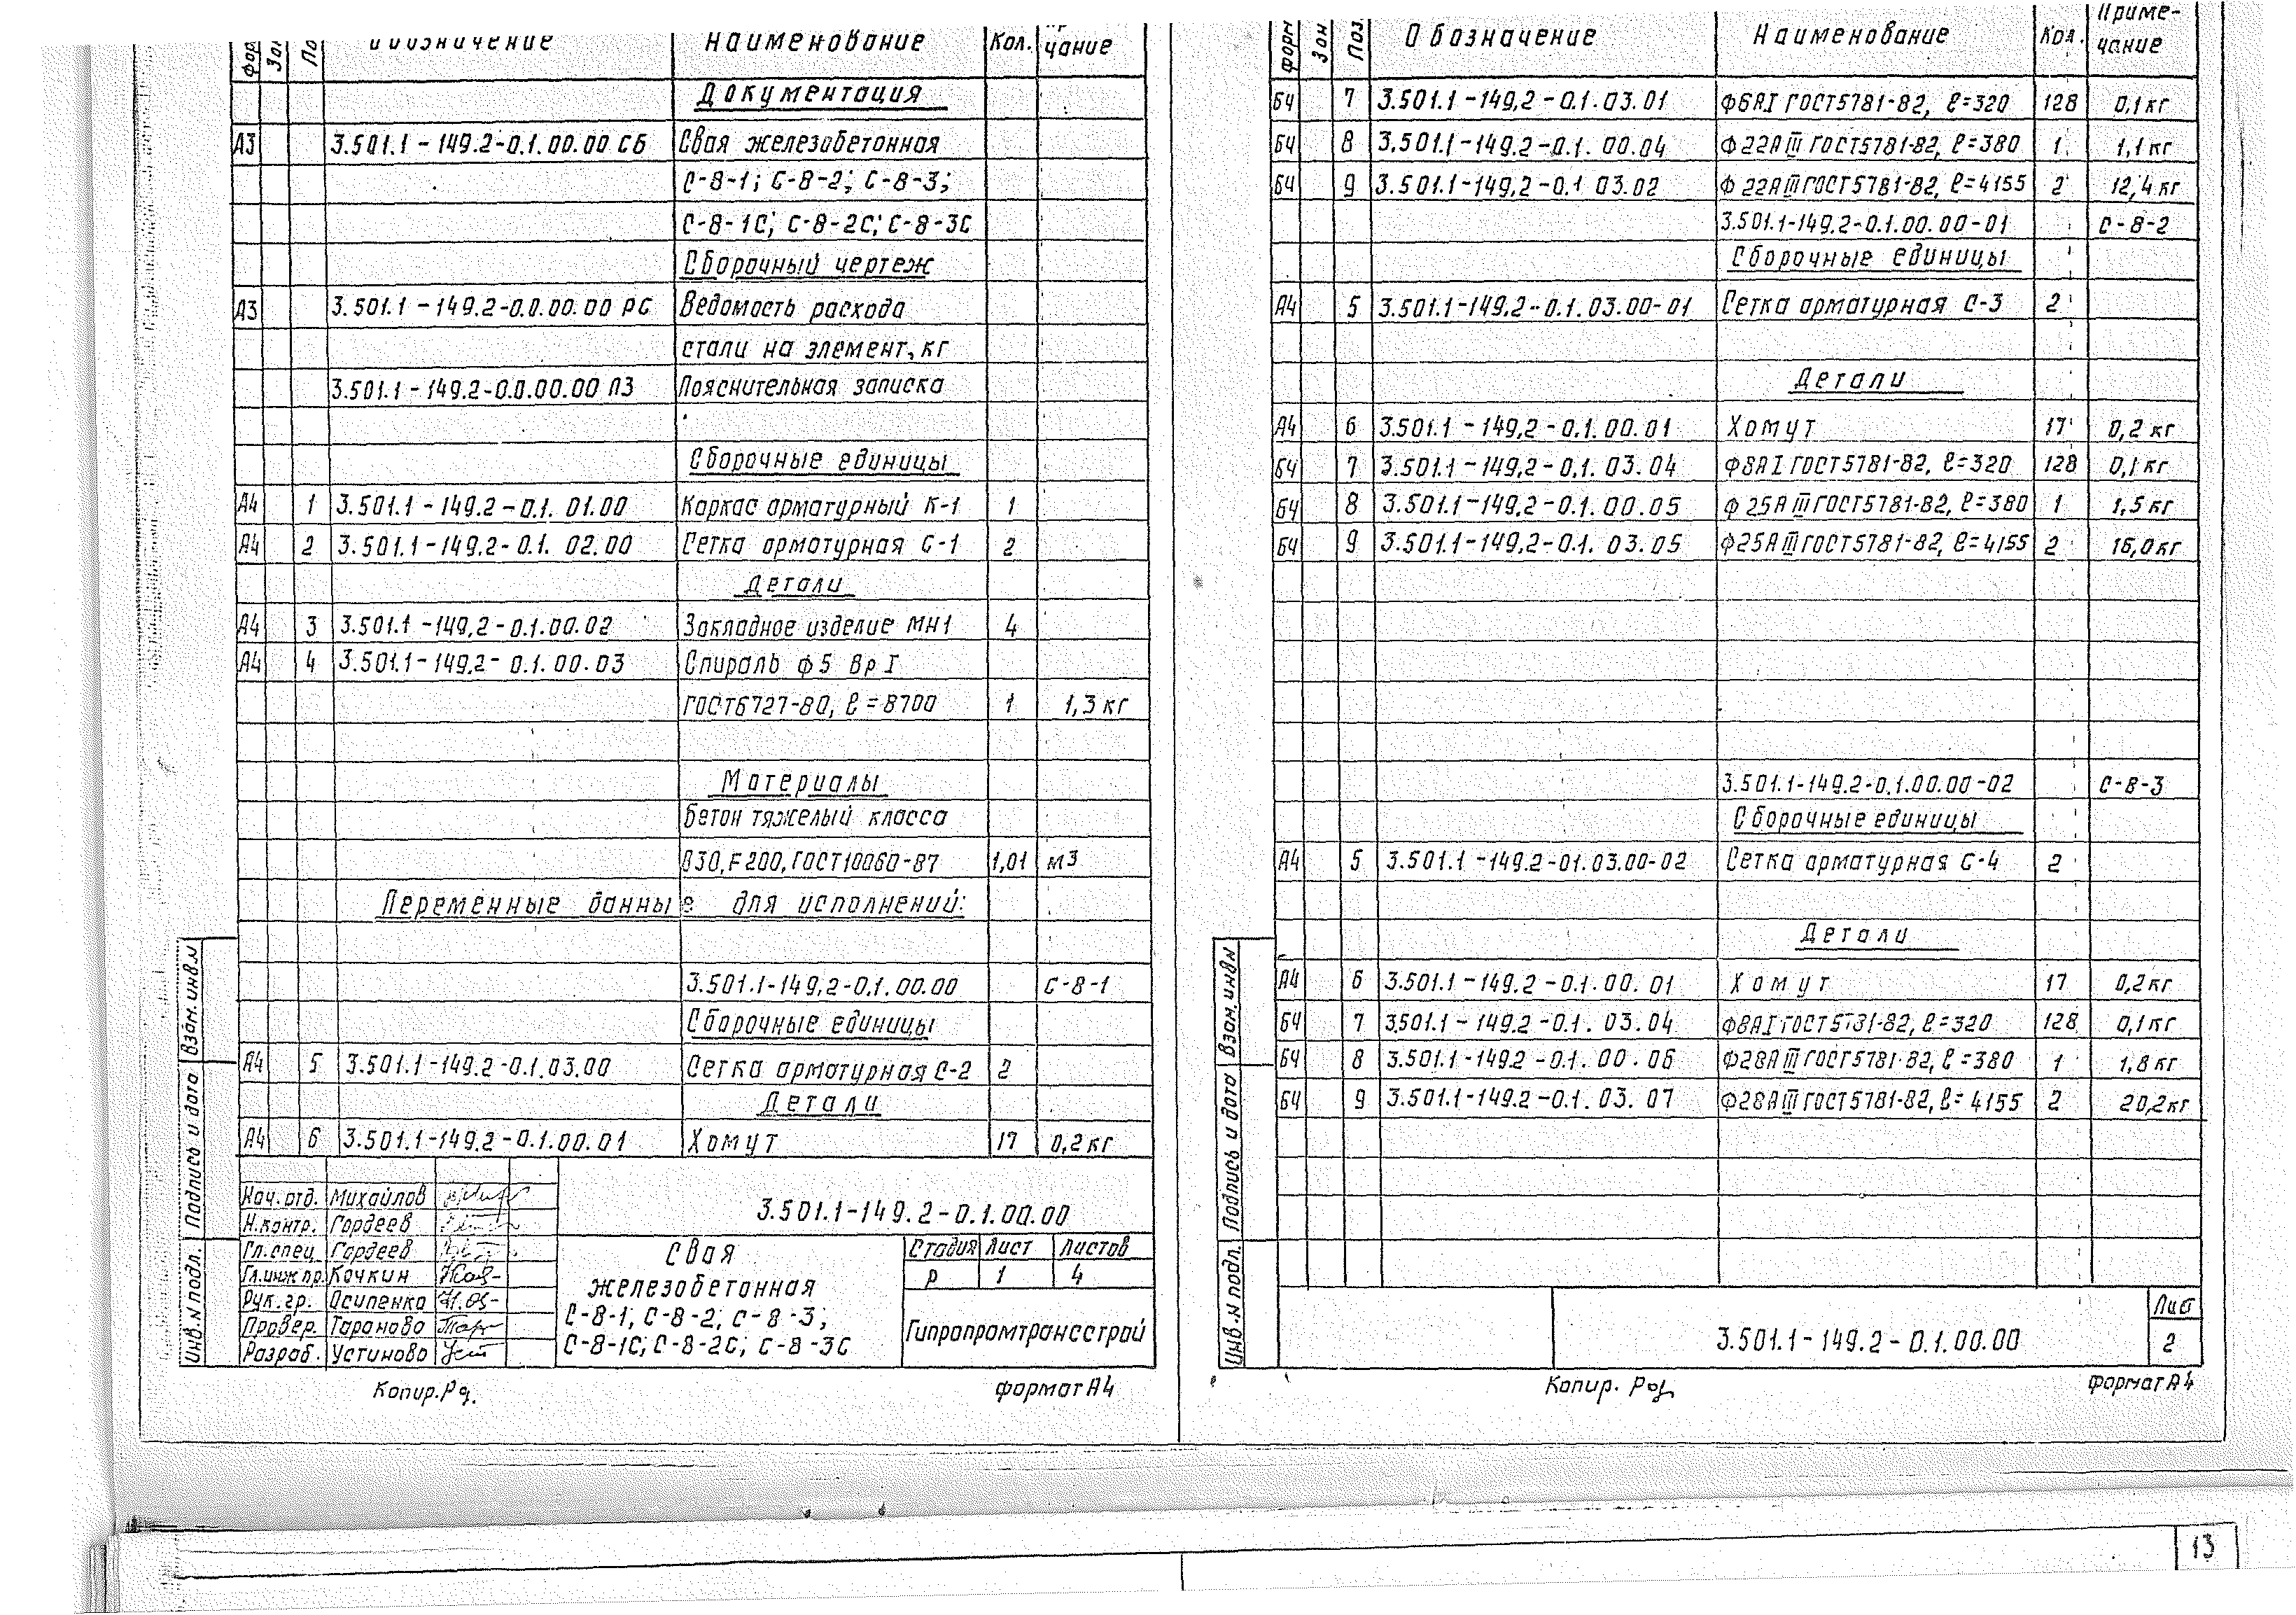 Обозначение Наименование Кол. чание
Документация
А3 3.501.1-149.2-0.1.00.00 СБ Свая железобетонная
С-8-1; С-8-2; С-8-3;
С-8-1С; С-8-2С; С-8-3С
Сборочный чертеж
А3 3.501.1-149.2-0.0.00.00 РС Ведомость расхода
стали на элемент, кг
3.501.1-149.2-0.0.00.00 ПЗ Пояснительная записка
Сборочные единицы
А4 1 3.501.1-149.2-0.1.01.00 Каркас арматурный К-1 1
А4 2 3.501.1-149.2-0.1.02.00 Сетка арматурная С-1 2
Детали
А4 3 3.501.1-149.2-0.1.00.02 Закладное изделие МН1 4
А4 4 3.501.1-149.2-0.1.00.03 Спираль ф5 Вр I
ГОСТ6727-80, ℓ=8700 1 1,3 кг
Материалы
бетон тяжелый класса
В30, F200, ГОСТ10060-87 1,01 м3
Переменные данные для исполнений:
3.501.1-149.2-0.1.00.00 С-8-1
Сборочные единицы
А4 5 3.501.1-149.2-0.1.03.00 Сетка арматурная С-2 2
Детали
А4 6 3.501.1-149.2-0.1.00.01 Хомут 17 0,2 кг
Взам. инв.N
Подпись и дата
Инв.N подл.
Нач.отд. Михайлов
Н.контр. Гордеев
Гл.спец. Гордеев
Гл.инж пр. Кочкин
Рук.гр. Осипенко
Провер. Таранова
Разраб. Устинова
3.501.1-149.2-0.1.00.00
Свая
железобетонная
С-8-1; С-8-2; С-8-3;
С-8-1С; С-8-2С; С-8-3С
Стадия Лист Листов
Р 1 4
Гипропромтрансстрой
Копир. формат А4
форм Зон Поз. Обозначение Наименование Кол. Приме-
чание
Б4 7 3.501.1-149.2-0.1.03.01 ф6АI ГОСТ5781-82, ℓ=320 128 0,1 кг
Б4 8 3.501.1-149.2-0.1.00.04 ф22АIII ГОСТ5781-82, ℓ=380 1 1,1 кг
Б4 9 3.501.1-149.2-0.1 03.02 ф22АIII ГОСТ5781-82, ℓ=4155 2 12,4 кг
3.501.1-149.2-0.1.00.00-01 С-8-2
Сборочные единицы
А4 5 3.501.1-149.2-0.1.03.00-01 Сетка арматурная С-3 2
Детали
А4 6 3.501.1-149.2-0.1.00.01 Хомут 17 0,2 кг
Б4 7 3.501.1-149.2-0.1.03.04 ф8АI ГОСТ5781-82, ℓ=320 128 0,1 кг
Б4 8 3.501.1-149.2-0.1.00.05 ф25АIII ГОСТ5781-82, ℓ=380 1 1,5 кг
Б4 9 3.501.1-149.2-0.1.03.05 ф25АIII ГОСТ5781-82, ℓ=4155 2 16,0 кг
3.501.1-149.2-0.1.00.00-02 С-8-3
Сборочные единицы
А4 5 3.501.1-149.2-01.03.00-02 Сетка арматурная С-4 2
Детали
А4 6 3.501.1-149.2-0.1.00.01 Хомут 17 0,2 кг
Б4 7 3.501.1-149.2-0.1.03.04 ф8АI ГОСТ5781-82, ℓ=320 128 0,1 кг
Б4 8 3.501.1-149.2-0.1.00.06 ф28АIII ГОСТ5781-82, ℓ=380 1 1,8 кг
Б4 9 3.501.1-149.2-0.1.03.07 ф28АIII ГОСТ5781-82, ℓ=4155 2 20,2 кг
Взам. инв.N
Подпись и дата
Инв.N подл.
3.501.1-149.2-0.1.00.00
Лист
2
Копир. формат А4
13